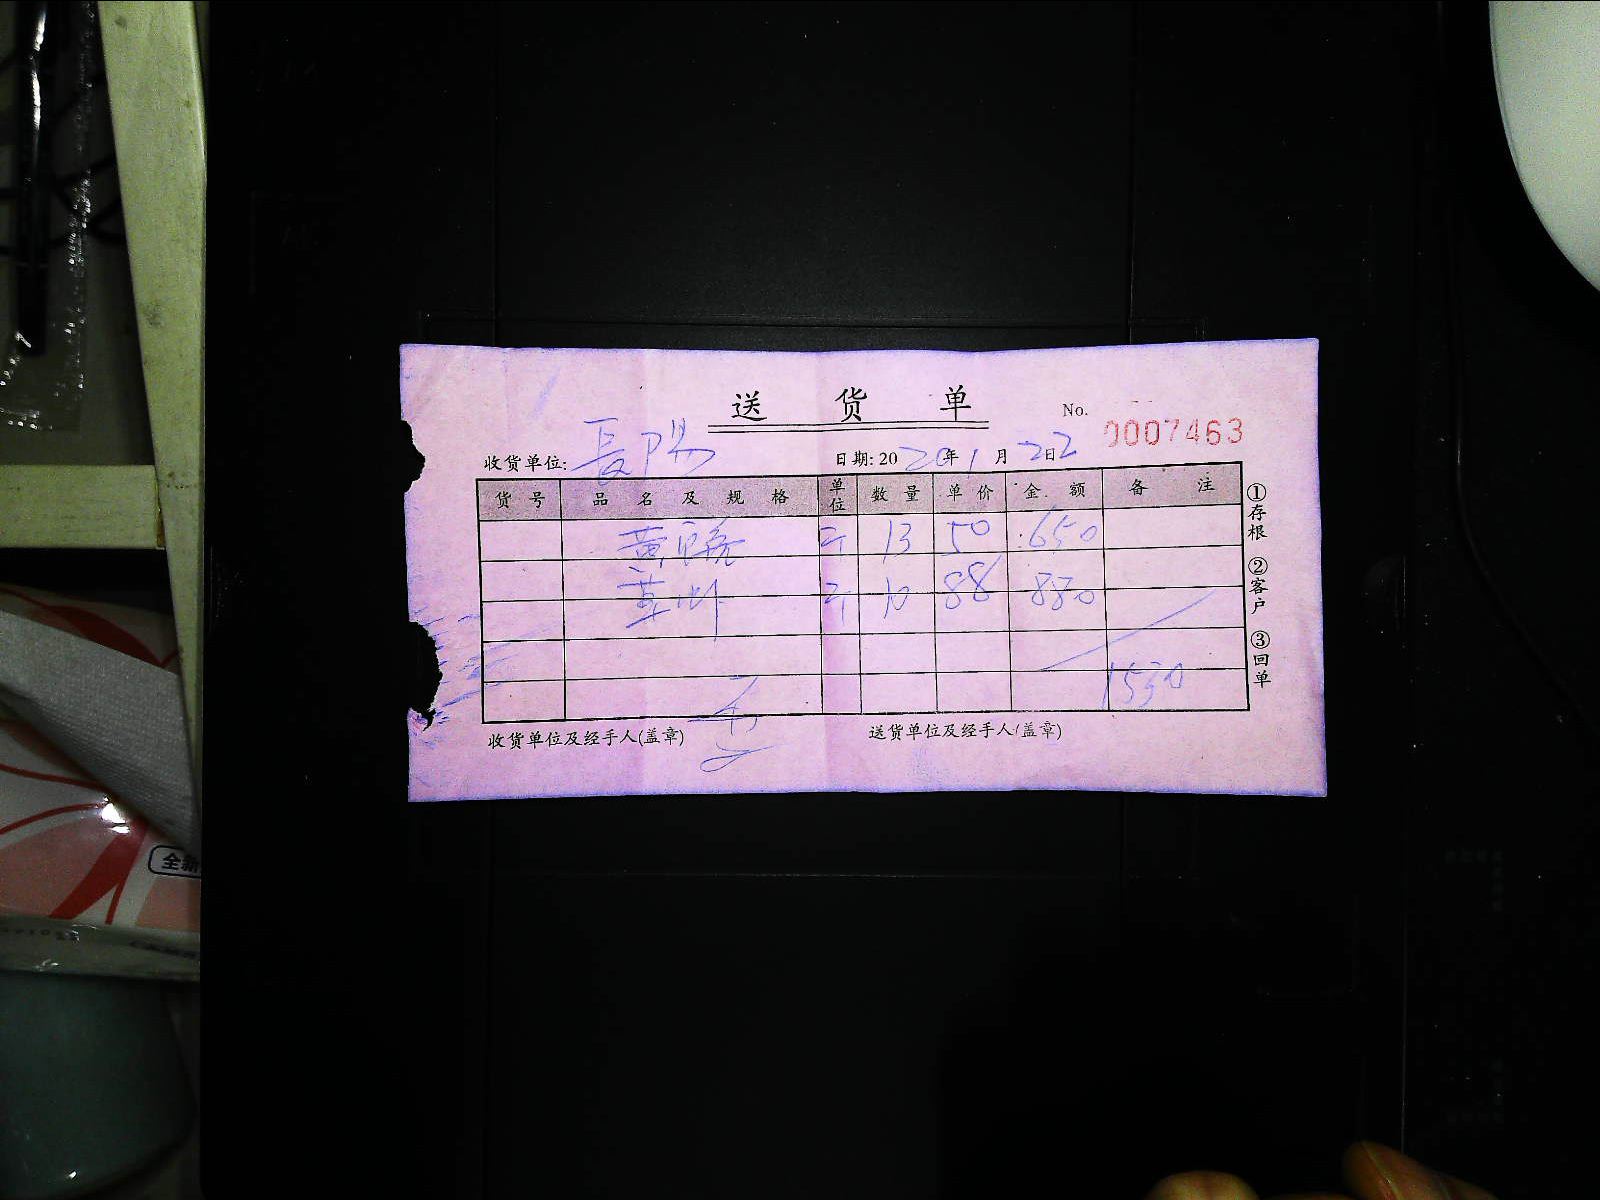 送 货 单
No. 0007463
收货单位: 長陽 日期: 2020年1月22日
货号 品名及规格 单位 数量 单价 金额 备注
黄 斤 13 50 650
草虾 斤 10 88 880
1530
收货单位及经手人(盖章) 送货单位及经手人(盖章)
①存根 ②客户 ③回单
全新